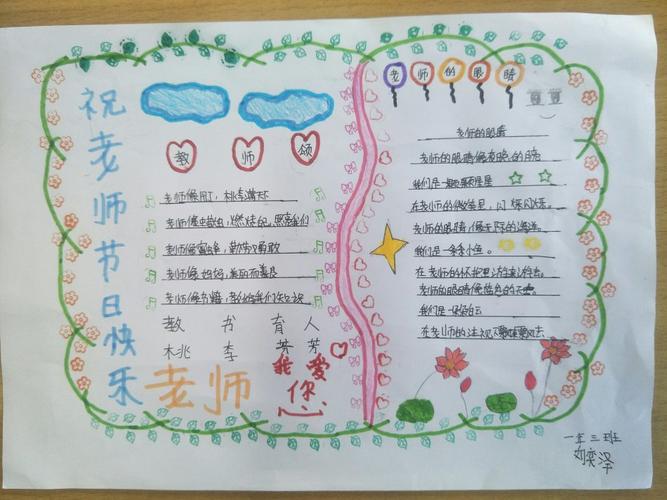 祝老师节日快乐
教师颂
老师像园丁，桃李满天下
老师像蜡烛，燃烧自己，照亮我们
老师像蜜蜂，勤劳又勇敢
老师像妈妈，美丽而善良
老师像书籍，教给我们知识
教书育人
桃李芬芳
老师
我爱你
老师的眼睛
老师的眼睛
老师的眼睛像夜晚的
我们是一颗颗星星
在老师的微笑里，闪烁闪烁。
老师的眼睛，像无际的海洋。
我们是一条条小鱼。
在老师的怀抱里
老师的眼睛像蓝色的天空。
我们是一朵朵白云
在老师的注视
一年三班
刘奕泽